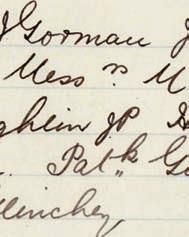 Gorman J
Mess rs M
ghlin JP D
Pat k Go
Clinchey